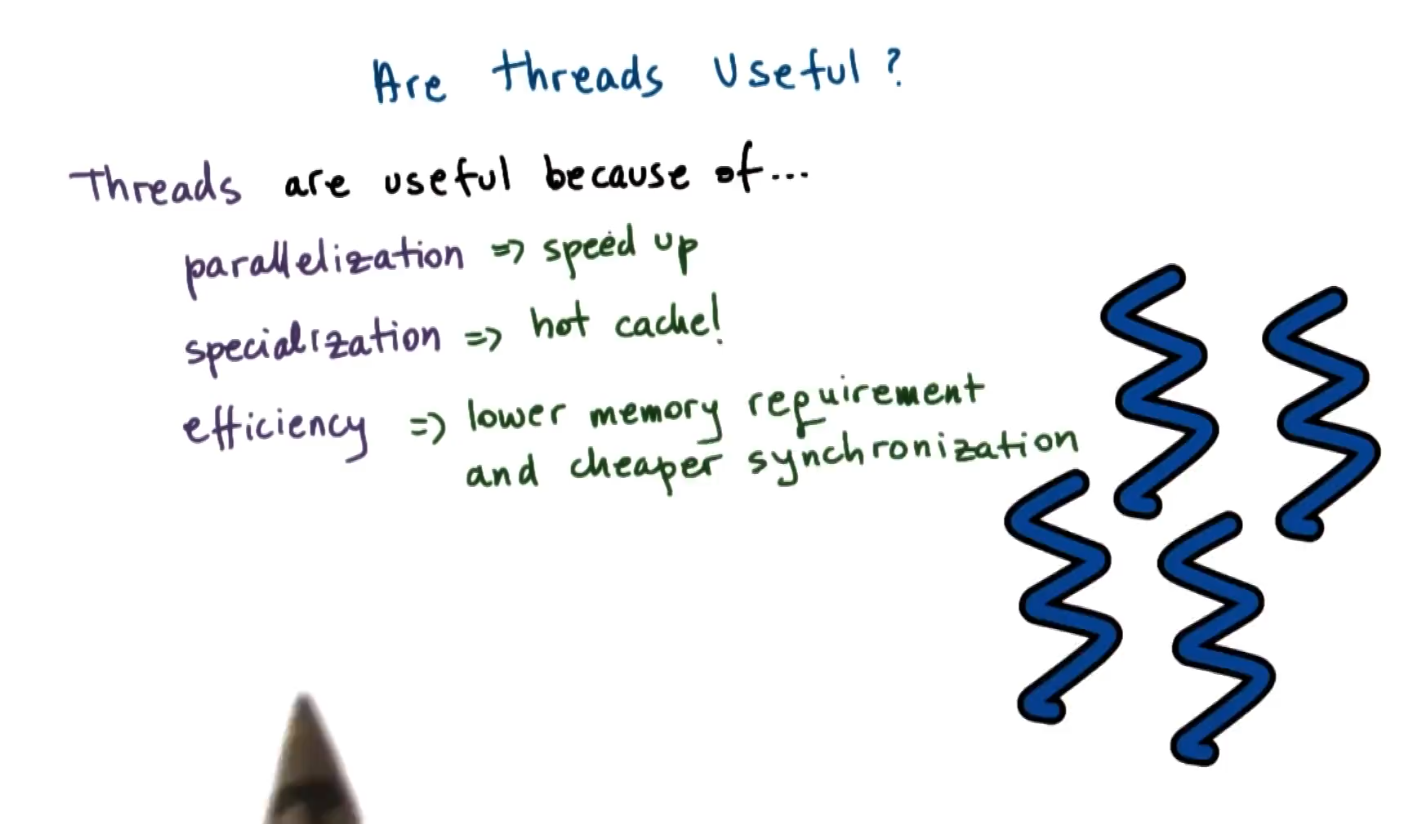 Are threads Useful?
Threads are useful because of...
parallelization => speed up
specialization => hot cache!
efficiency => lower memory requirement
and cheaper synchronization